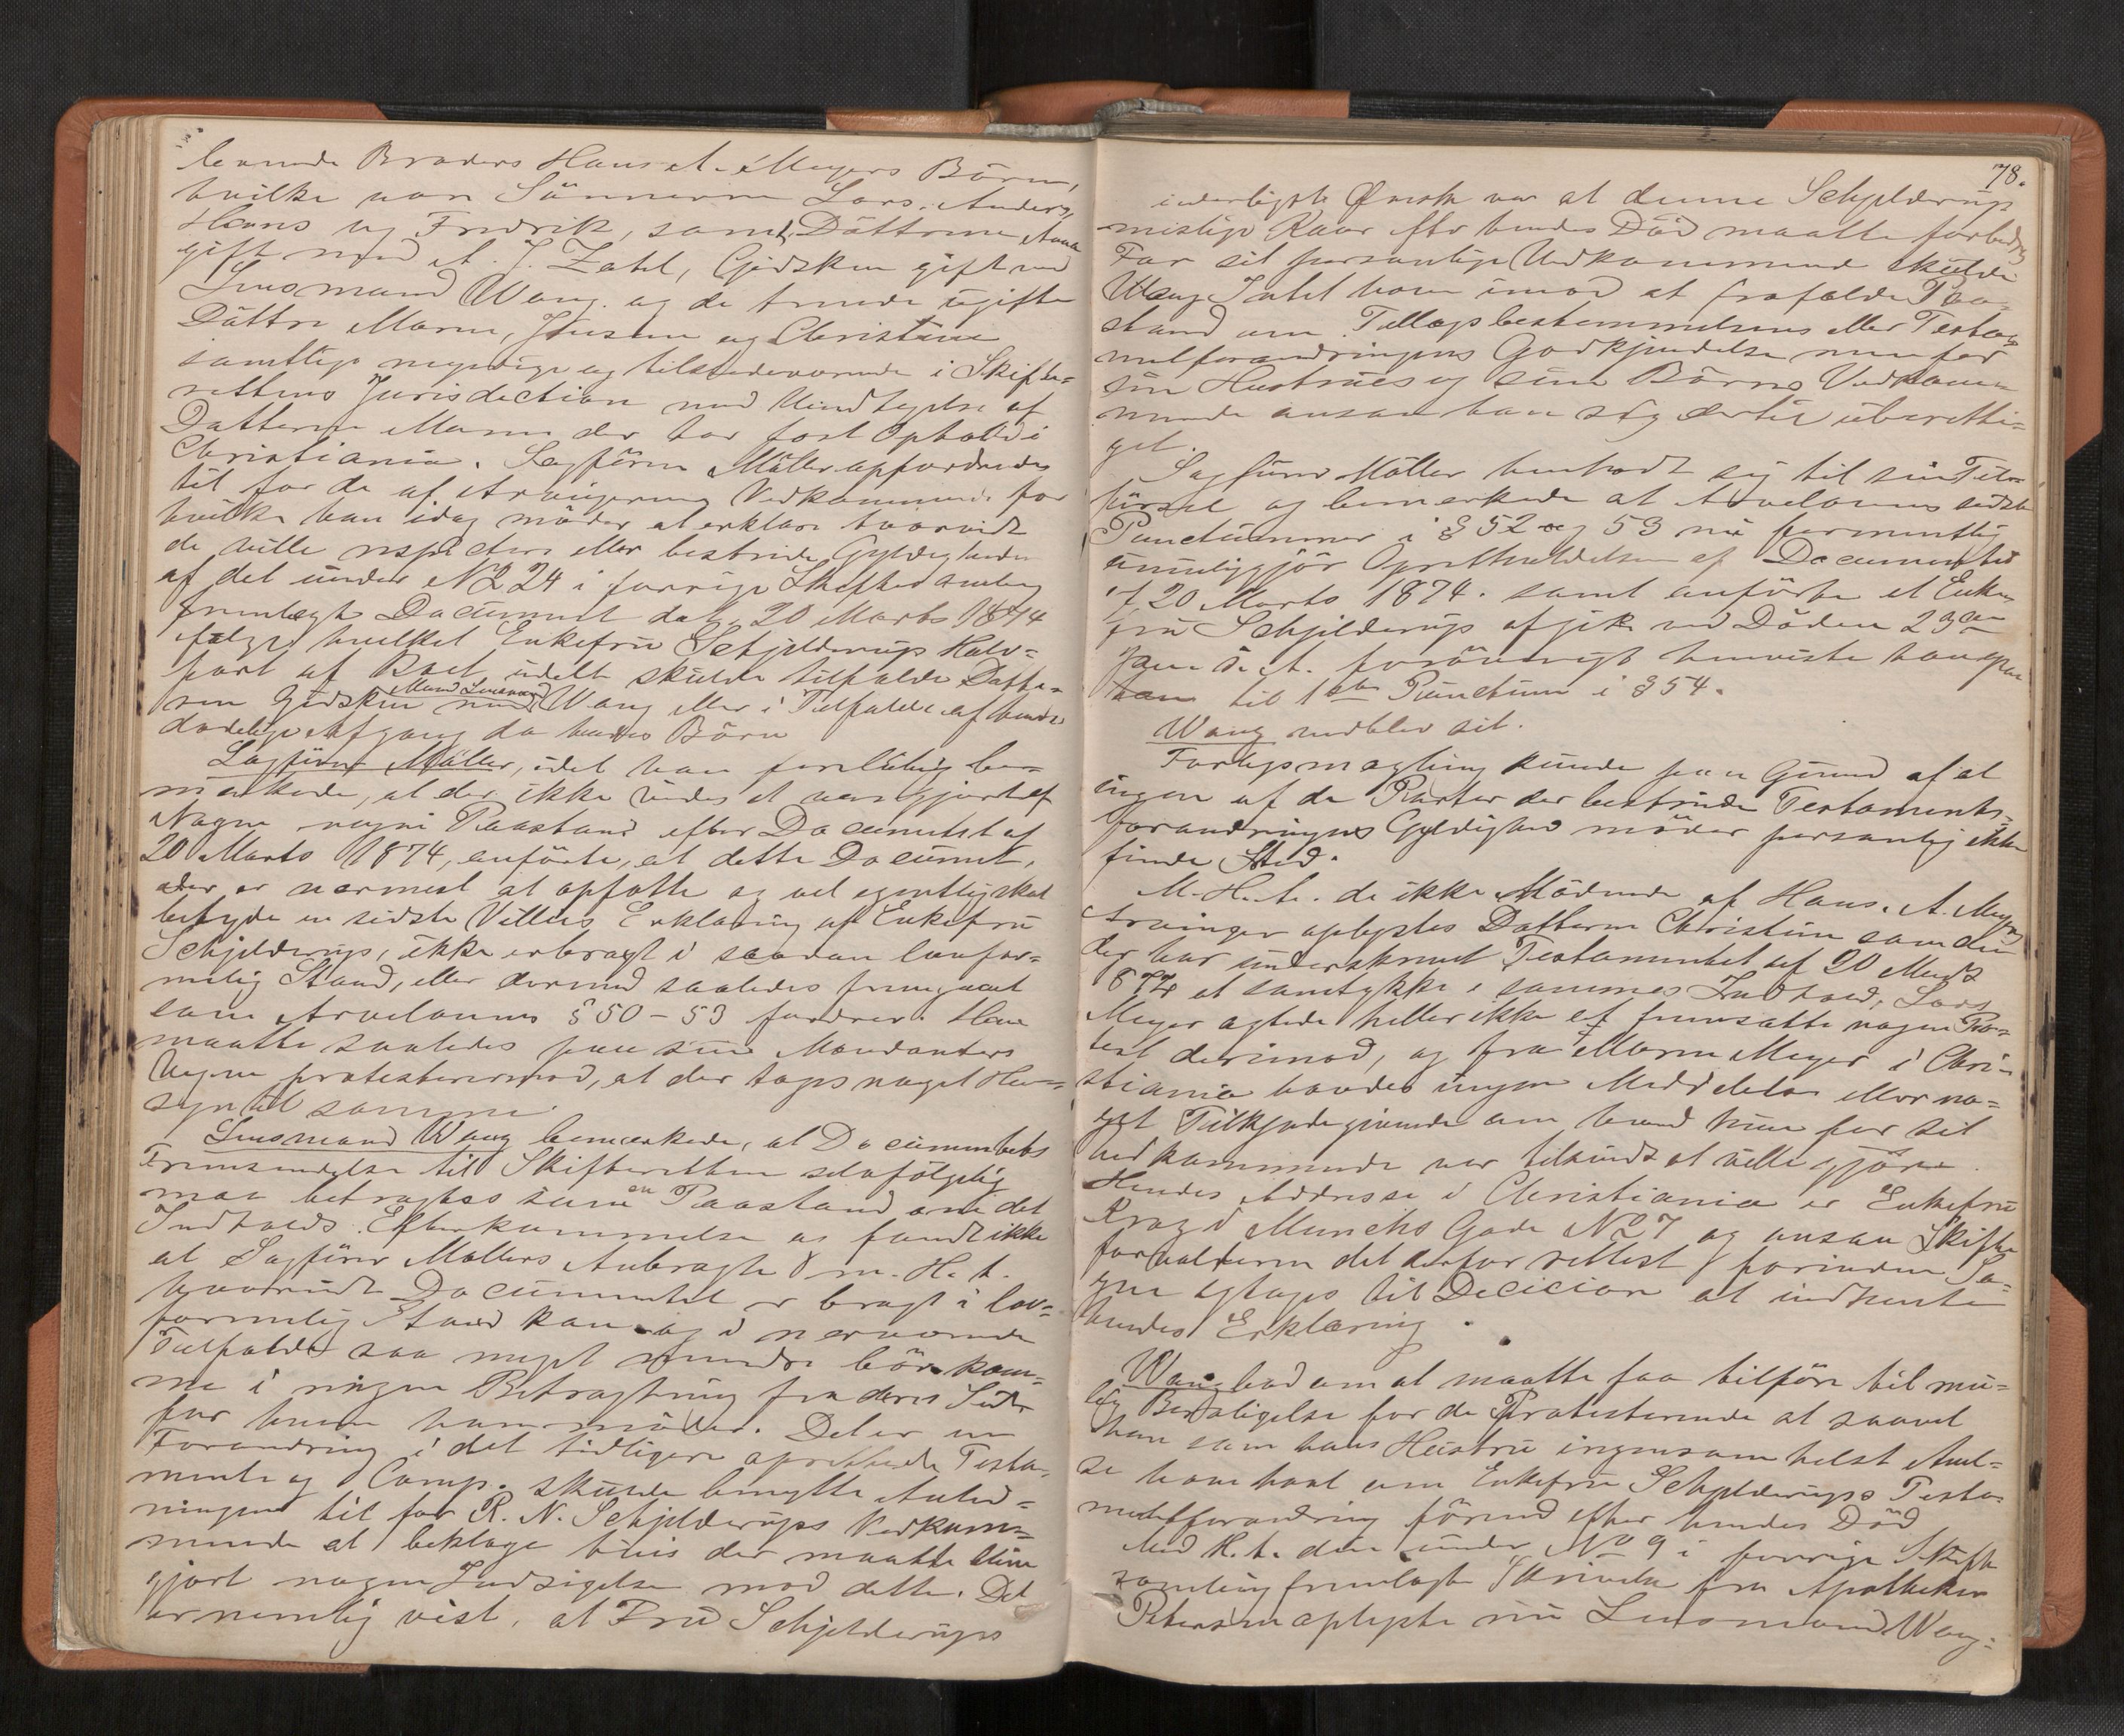 levende Broders Hans A. Meyers Börn,
hvilke var Sönnerne Lars, Anders,
Hans og Fredrik, samt Döttrene Anna
gift med A. J. Zahl, Gidsken gift med
Lensmand Wang og de trende ugifte
Döttre Maren, Jensine og Christine
samtlige myndige og tilstedeværende i Skifte-
rettens Jurisdiction med Undtagelse af
Datteren Maren der har fast Ophold i
Christiania. Sagförer Möller opfordredes
til for de af Arvingerne Vedkommende for
hvilke han idag möder at erklære hvorvidt
de ville respectere eller bestride Gyldigheden
af det under No 24 i forrige Skiftesamling
fremlagte Document dat. 20 Marts 1874
ifølge hvilket Enkefru Schjelderups Halv-
part af Boet udelt skulde tilfalde Datte-
ren Gidsken Mand Lensmand Wang eller i Tilfælde af hendes
dødelige Afgang da hendes Börn
Sagförer Möller, idet han foreløbig be-
mærkede, at der ikke vides at være gjort af
Nogen nogen Paastand efter Documentet af
20 Marts 1874, anförte, at dette Document,
der er nærmest at opfatte og vel egentlig skal
betyde en sidste Villies Erklæring af Enkefru
Schjelderup, ikke er bragt i saadan lovfor-
melig Stand, eller dermed saaledes fremgaaet
som Arvelovens § 50-53 fordrer. Han
maatte saaledes paa sine Mandanters
Vegne protestere mod, at der toges noget Hen-
syn til samme.
Lensmand Wang bemærkede, at Documentets
Fremsendelse til Skifteretten selvfölgelig
maa betragtes som en Paastand om det
Indholds Efterkommelse og fandt ikke
at Sagförer Möllers Anbragte m. H. t.
hvorvidt Documentet er bragt i lov-
formelig Stand kan og i nærværende
Tilfælde saa meget mindre bör kom-
me i nogen Betragtning fra deres Side
for hvem han möder. Det er en
Forandring i det tidligere oprettede Testa-
mente og Comp. skulde benytte Anled-
ningen til for R. N. Schjelderups Vedkom-
mende at beklage hvis der maatte blive
gjort nogen Indsigelse mod dette. Det
er nemlig vist, at Fru Schjelderups
78.
inderligste Ønske var at denne Schjelderups
mislige Kaar efter hendes Död maatte forbedres
For sit personlige Vedkommende skulde
Wang Intet have imod at frafalde Paa-
stand om Tillægsbestemmelsens eller Testa-
mentforandringens Godkjendelse men for
sin Hustrues og sine Börns Vedkom-
mende ansaa han sig dertil uberetti-
get.
Sagförer Möller henholdt sig til sin Til-
försel og bemærkede at Arvelovens sidste
Punctummer i § 52 og 53 nu formentlig
umuliggjör Opretholdelsen af Documentet
af 20 Marts 1874. samt anförte at Enke-
fru Schjelderup afgik ved Döden 23de
Juni d. A. foröævrigt henviste han
til 1ste Punctum i § 54.
Wang vedblev sit.
Forligsmægling kunde paa Grund af at
ingen af de Parter der bestride Testaments-
forandringens Gyldighed möder personlig ikke
finde Sted.
M. H. t. de ikke Mödende af Hans A. Meyers
Arvinger oplystes Datteren Christine som den
der har underskrevet Testamentet af 20 Marts
1874 at samtykke i sammes Indhold, Lars
Meyer agtede heller ikke at fremsætte nogen Pro-
test derimod, og fra Maren Meyer i Chri-
stiania havdes ingen Meddelelse eller no-
get Tilkjendegivende om hvad hun for sit
Vedkommende var tilsinds at ville gjöre.
Hendes Addresse i Christiania er Enkefru
Krag i Munchs Gade No 7 og ansaa Skifte-
forvalteren det derfor rettest forinden Sa-
gen optages til Decision at indhente
hendes Erklæring.
Wang bad om at maatte faa tilföre til mu-
lig Beroligelse for de Protesterende at saavel
han som hans Hustru ingensomhelst Anel-
se have havt om Enkefru Schjelderups Testa-
mentforandring förend efter hendes Död
Med H. t. den under No 9 i forrige Skifte-
samling fremlagte Skrivelse fra Apotheker
Petersen oplyste nu Lensmand Wang: